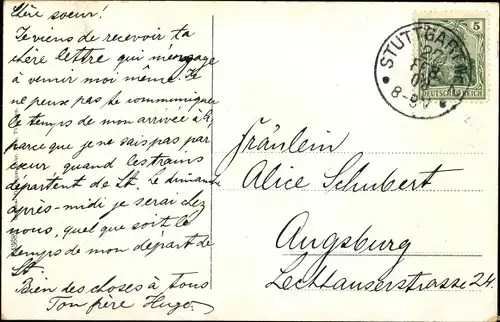 Chère soeur!
Je viens de recevoir ta
chère lettre qui m'engage
à venir moi même. Je
ne peux pas te communiquer
le temps de mon arrivée à A.
parce que je ne sais pas par
cœur quand les trains
départent de St. Le dimanche
après-midi je serai chez
nous, quel que soit le
temps de mon départ de
St.
Bien des choses à tous
Ton frère Hugo.
STUTTGART
FEB
8-9 V
5
DEUTSCHES REICH
Fräulein
Alice Schubert
Augsburg
Lechhauserstrasse 24.